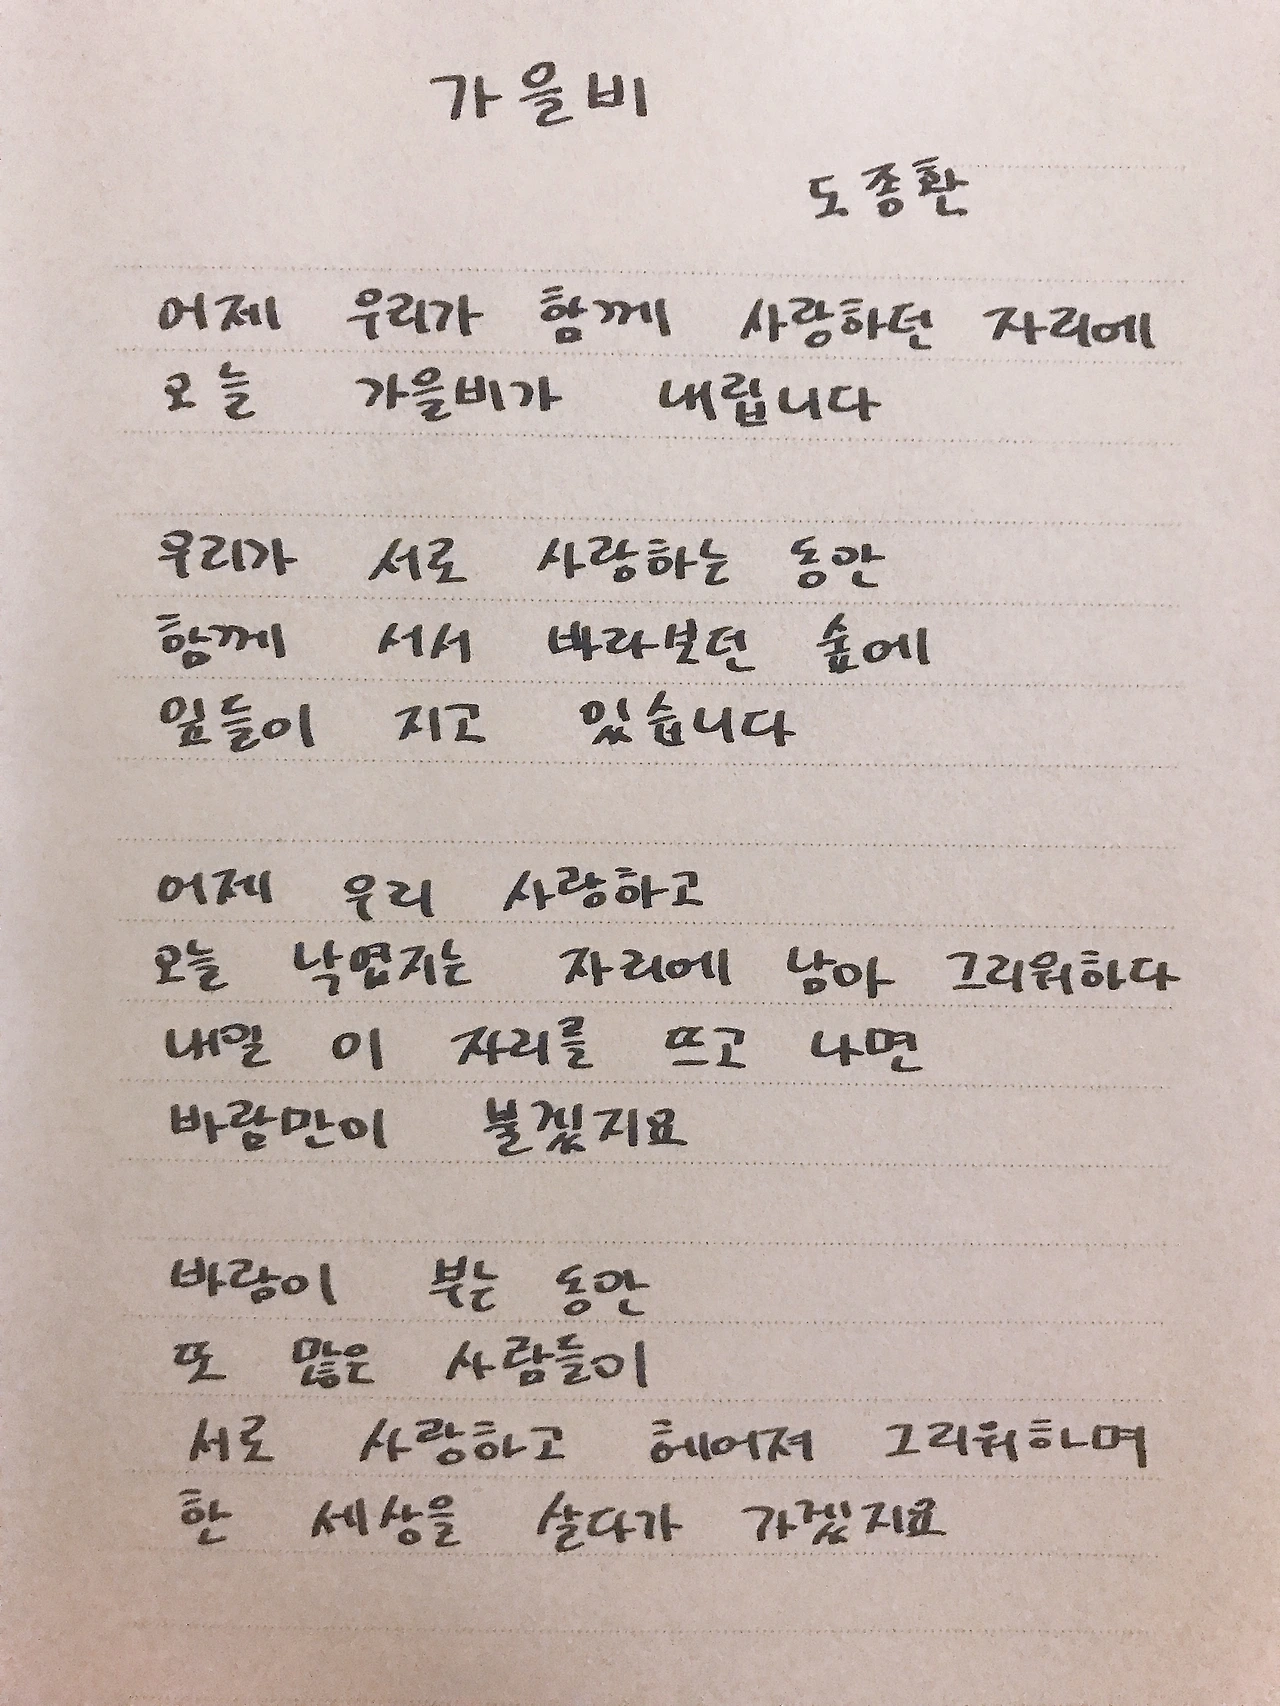 가을비
도종환
어제 우리가 함께 사랑하던 자리에
오늘 가을비가 내립니다
우리가 서로 사랑하는 동안
함께 서서 바라보던 숲에
잎들이 지고 있습니다
어제 우리 사랑하고
오늘 낙엽지는 자리에 남아 그리워하다
내일 이 자리를 뜨고 나면
바람만이 불겠지요
바람이 부는 동안
또 많은 사람들이
서로 사랑하고 헤어져 그리워하며
한 세상을 살다가 가겠지요